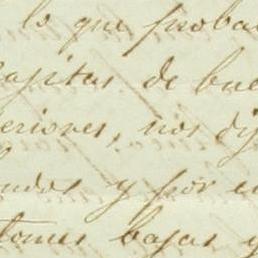 lo que proba
apitas de bue
eriores, nos dij
ndos y por e
tomes bajas y